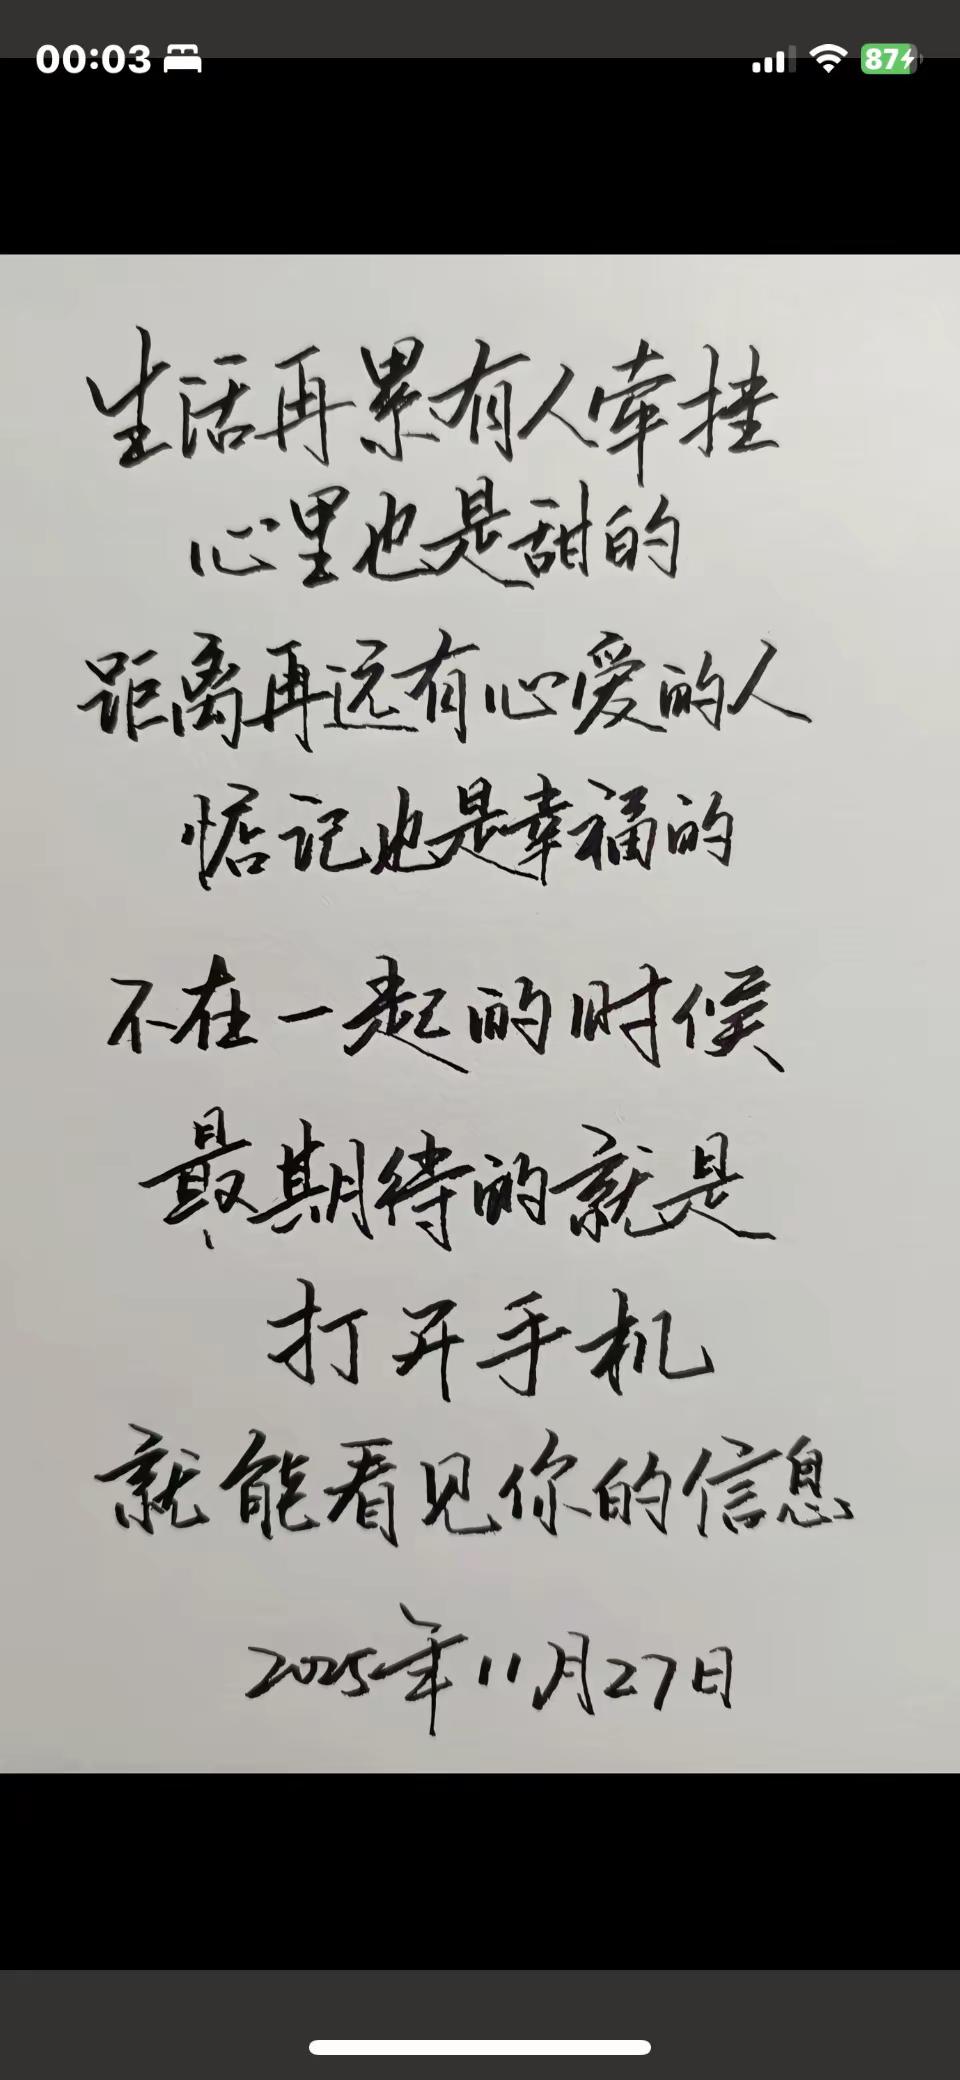 00:03
87
生活再累有人牵挂
心里也是甜的
距离再远有心爱的人
惦记也是幸福的
不在一起的时候
最期待的就是
打开手机
就能看见你的信息
2025年11月27日